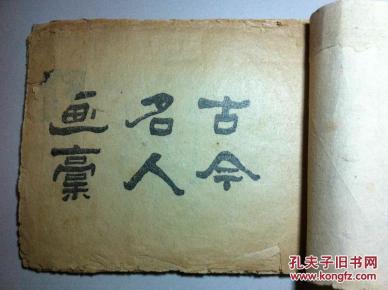 古今
名人
画稾
孔夫子旧书网